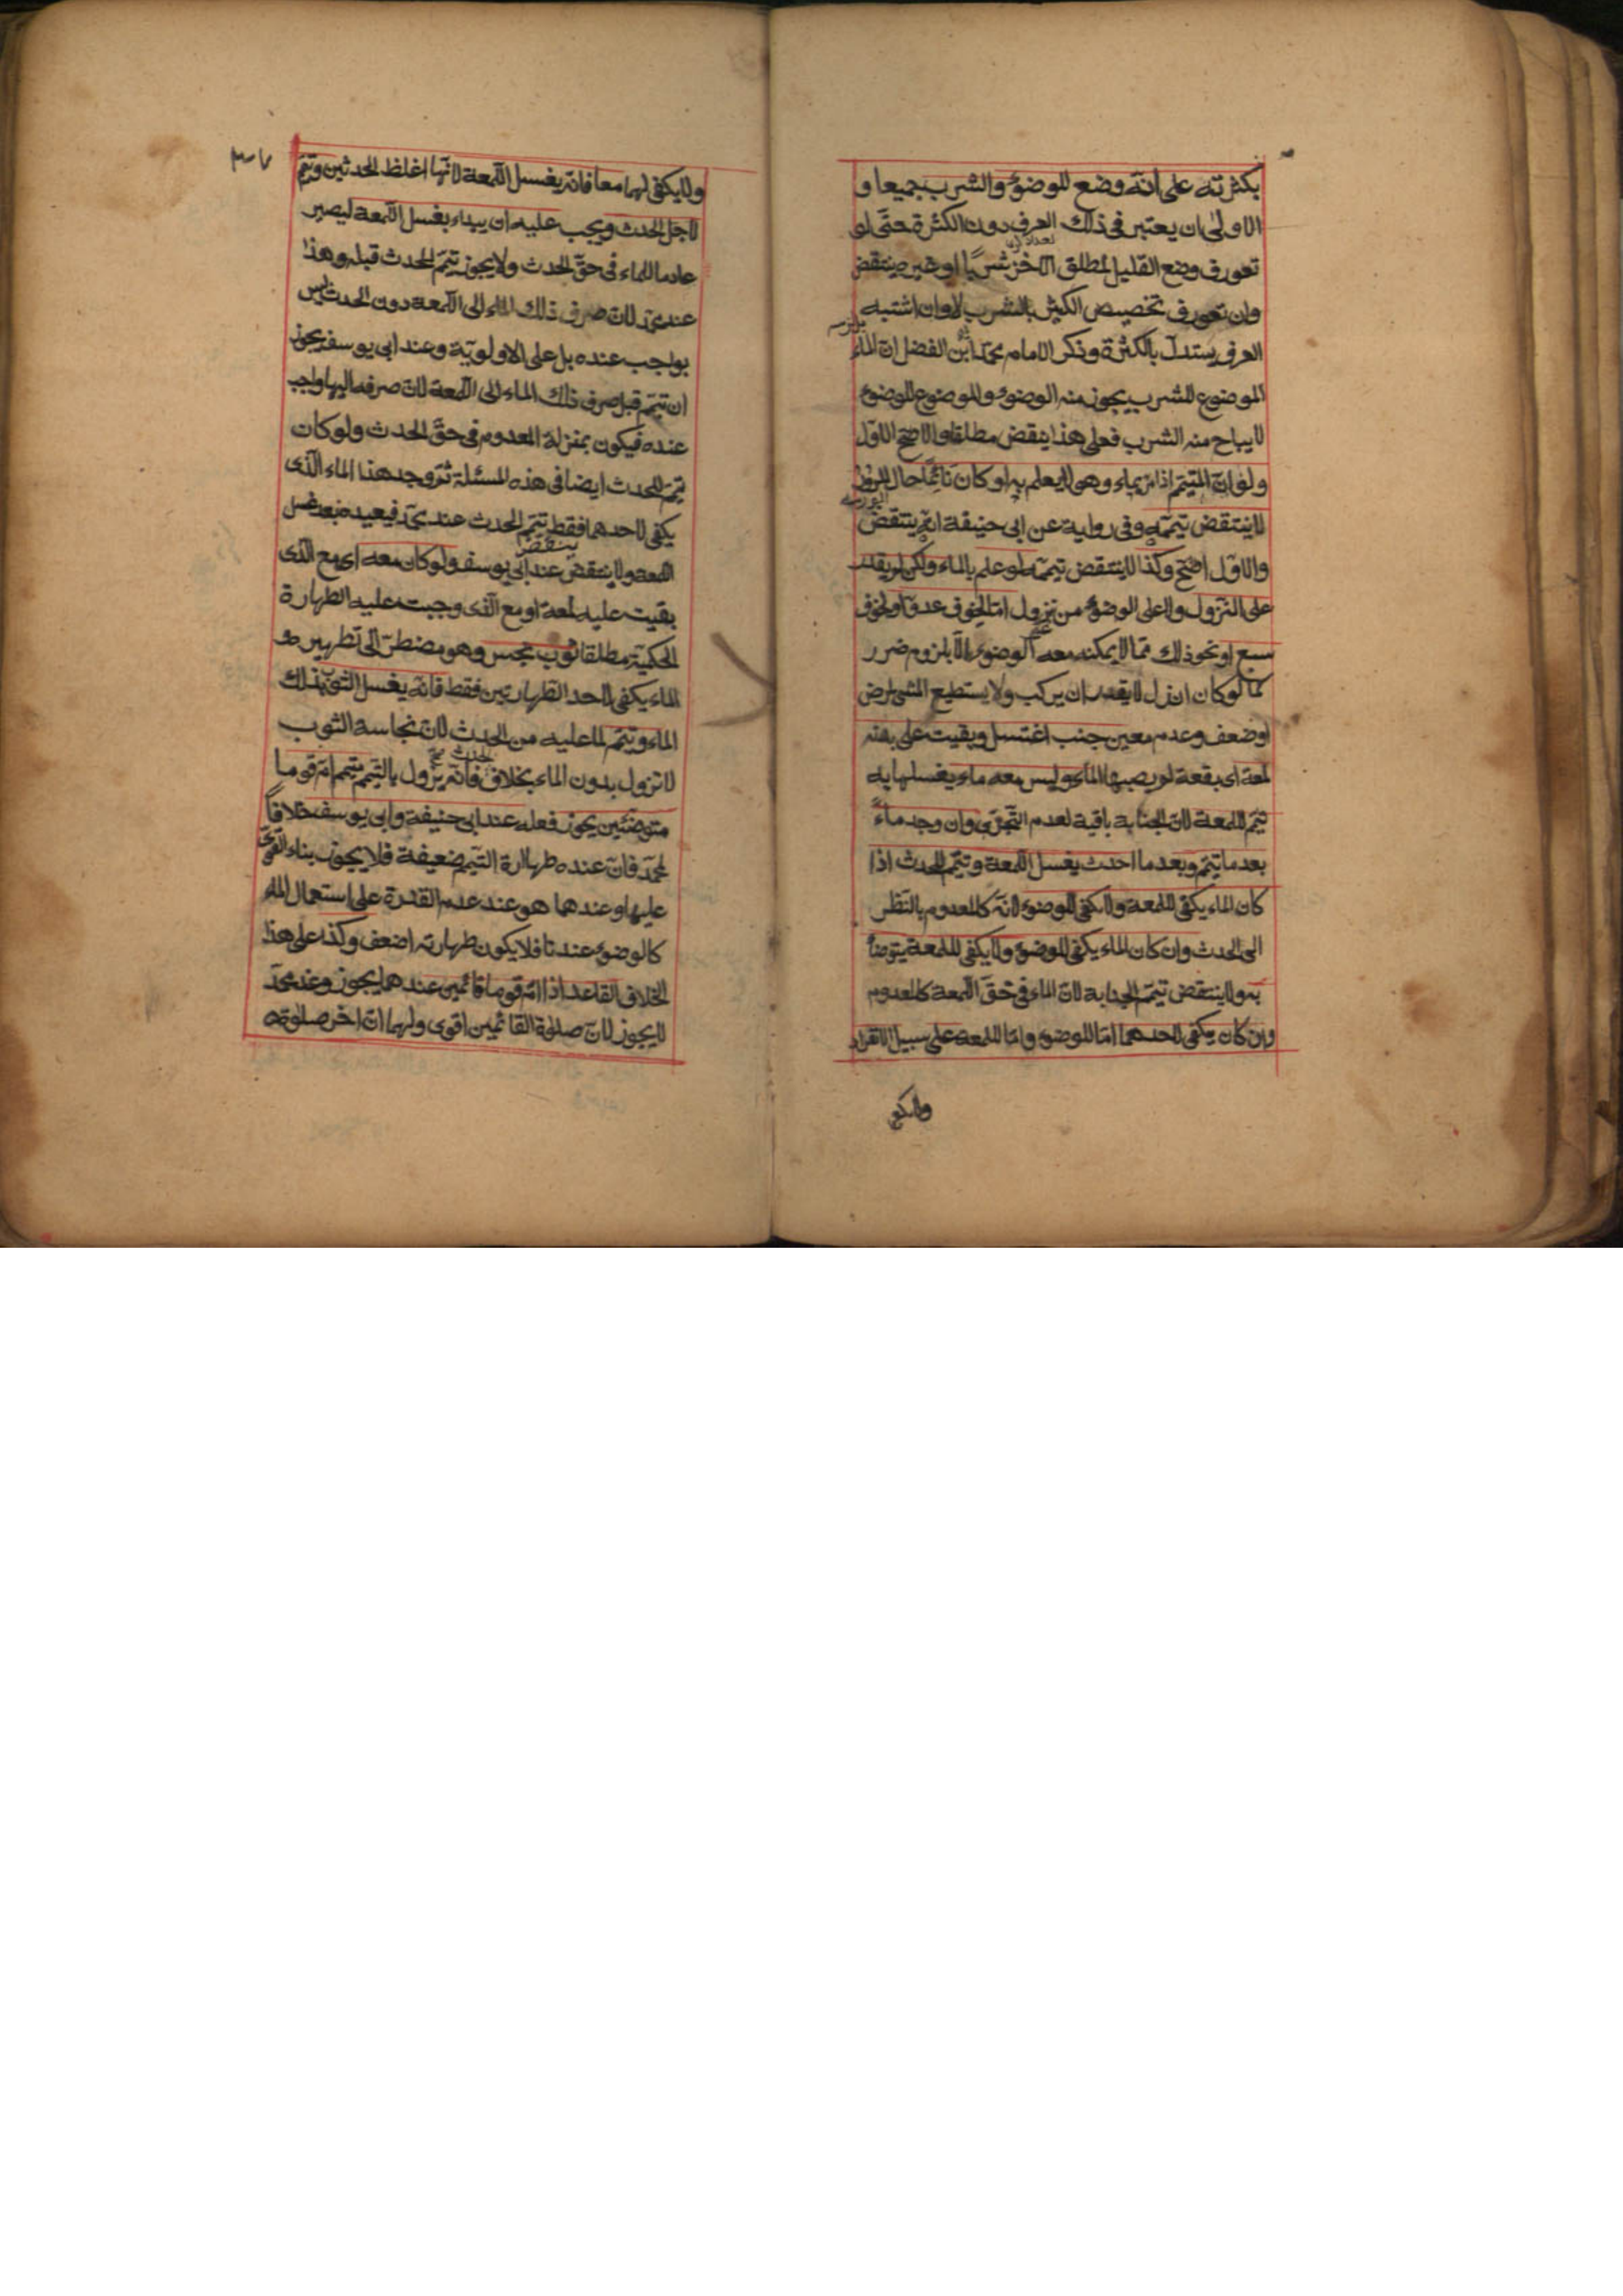 بكثرته على انّه وضع للوضوء والشرب جميعا و
الاولى ان يعتبر فى ذلك العرف دون الكثرة حتّى لو
تعورف وضع القليل المطلق شربا او غيره ينتقض
وان تعورف تخصيص الكثير بالشرب لا وان اشتبه
العرف يستدلّ بالكثرة وذكر الامام محمّد ابن الفضل انّ الماء
الموضوع للشرب يجوز منه الوضوء والموضوع للوضوء
لا يباح منه الشرب فعلى هذا ينقض مطلقا والاصحّ الاوّل
ولو انّ المتيمّم اذا مرّ بماء وهو لا يعلم به او كان نائما حال المرور
لا ينتقض تيمّمه وفى رواية عن ابى حنيفة انّه ينتقض
والاوّل اصحّ وكذا لا ينتقض تيمّمه لو علم بالماء ولكن لم يقدر
على النّزول ولا على الوضوء من نزول امّا لخوف عدوّ او لخوف
سبع او نحو ذلك ممّا لا يمكنه معه الوضوء الّا بلزوم ضرر
كما لو كان ان نزل لا يقدر ان يركب ولا يستطيع المشى لمرض
او ضعف وعدم معين جنب اغتسل وبقيت على بدنه
لمعة اى بقعة لم يصبها الماء وليس معه ماء يغسلها به
تيمّم للمعة لانّ الجنابة باقية لعدم التّجزّى وان وجد ماءً
بعد ما تيمّم وبعد ما احدث يغسل اللّمعة وتيمّم للحدث اذا
كان الماء يكفى للمعة ولا يكفى للوضوء لانّه كالمعدوم بالنّظر
الى الحدث وان كان الماء يكفى للوضوء ولا يكفى للمعة يتوضّأ
به ولا ينتقض تيمّم الجنابة لانّ الماء فى حقّ اللّمعة كالمعدوم
وان كان يكفى لاحدهما امّا للوضوء وامّا للمعة على سبيل الانفراد
ولا يكفى
ولا يكفى لهما معا فانّه يغسل اللّمعة لانّها اغلظ الحدثين وتيمّم
لاجل الحدث ويجب عليه ان يبداء بغسل اللّمعة ليصير
عادما للماء فى حقّ الحدث ولا يجوز تيمّم الحدث قبله وهذا
عند محمّد لانّ صرف ذلك الماء الى اللّمعة دون الحدث ليس
بواجب عنده بل على الاولويّة وعند ابى يوسف يجوز
ان تيمّم قبل صرف ذلك الماء الى اللّمعة لانّ صرفه اليها واجب
عنده فيكون بمنزلة المعدوم فى حقّ الحدث ولو كان
تيمّم للحدث ايضا فى هذه المسئلة ثمّ وجد هذا الماء الّذى
يكفى لاحدهما فقط ينتقض تيمّم الحدث عند محمّد فيعيده بعد غسل
اللّمعة ولا ينتقض عند ابى يوسف ولو كان معه اى مع الّذى
بقيت عليه لمعة او مع الّذى وجبت عليه الطهارة
الحكميّة مطلقا ثوب نجس وهو مضطرّ الى تطهيره و
الماء يكفى لاحد الطّهارتين فقط فانّه يغسل الثّوب بذلك
الماء ويتيمّم لما عليه من الحدث لانّ نجاسة الثّوب
لا تزول بدون الماء بخلاف الحدث فانّه يزول بالتّيمّم متيمّم امّ قوما
متوضّئين يجوز فعله عند ابى حنيفة وابى يوسف خلافا
لمحمّد فانّ عنده طهارة التّيمّم ضعيفة فلا يجوز بناء القوى
عليها وعندهما هو عند عدم القدرة على استعمال الماء
كالوضوء عندنا فلا يكون طهارته اضعف وكذا على هذا
الخلاف القاعد اذا امّ قوما قائمين عندهما يجوز وعند محمّد
لا يجوز لانّ صلوة القائمين اقوى ولهما انّ اخر صلوته